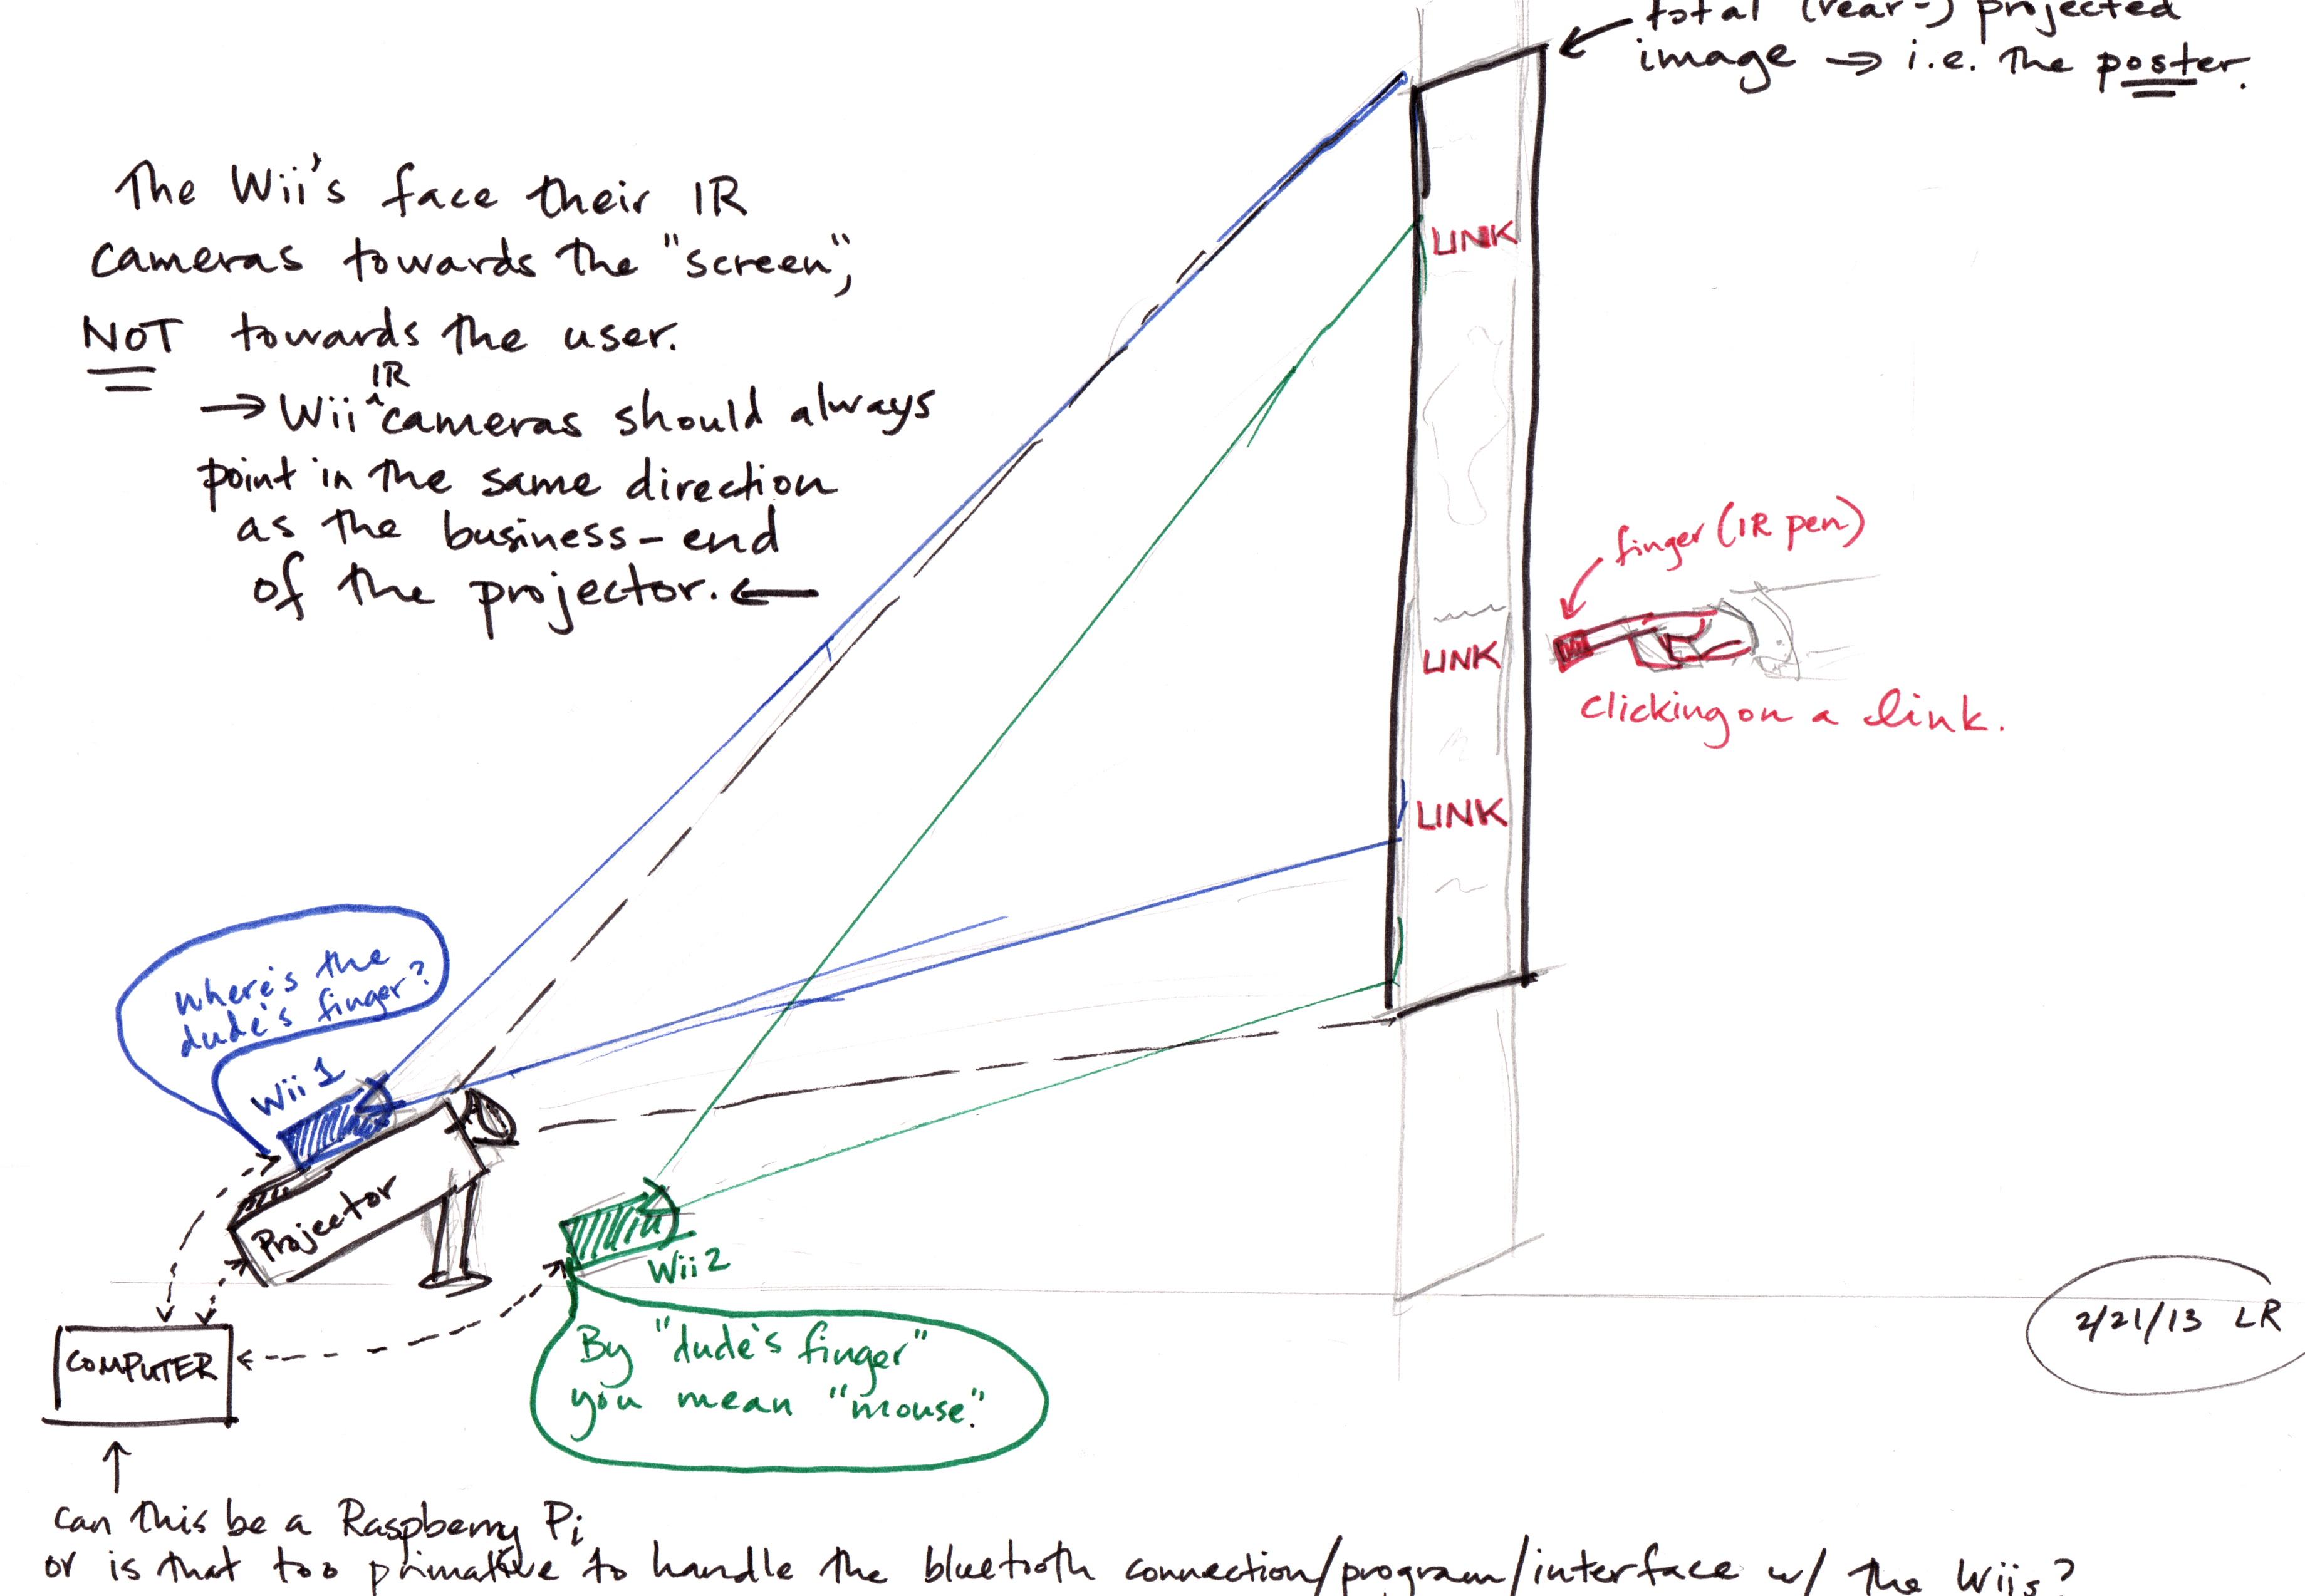 total (rear-) projected
image → i.e. the poster.
The Wii's face their IR
cameras towards the "screen",
NOT towards the user.
→ Wii IR cameras should always
point in the same direction
as the business-end
of the projector. ←
LINK
LINK
LINK
finger (IR pen)
clicking on a link.
Where's the
dude's finger?
Wii 1
Projector
Wii 2
COMPUTER
By "dude's finger"
you mean "mouse."
2/21/13 LR
can this be a Raspberry Pi
or is that too primative to handle the bluetooth connection/program/interface w/ the Wiis?